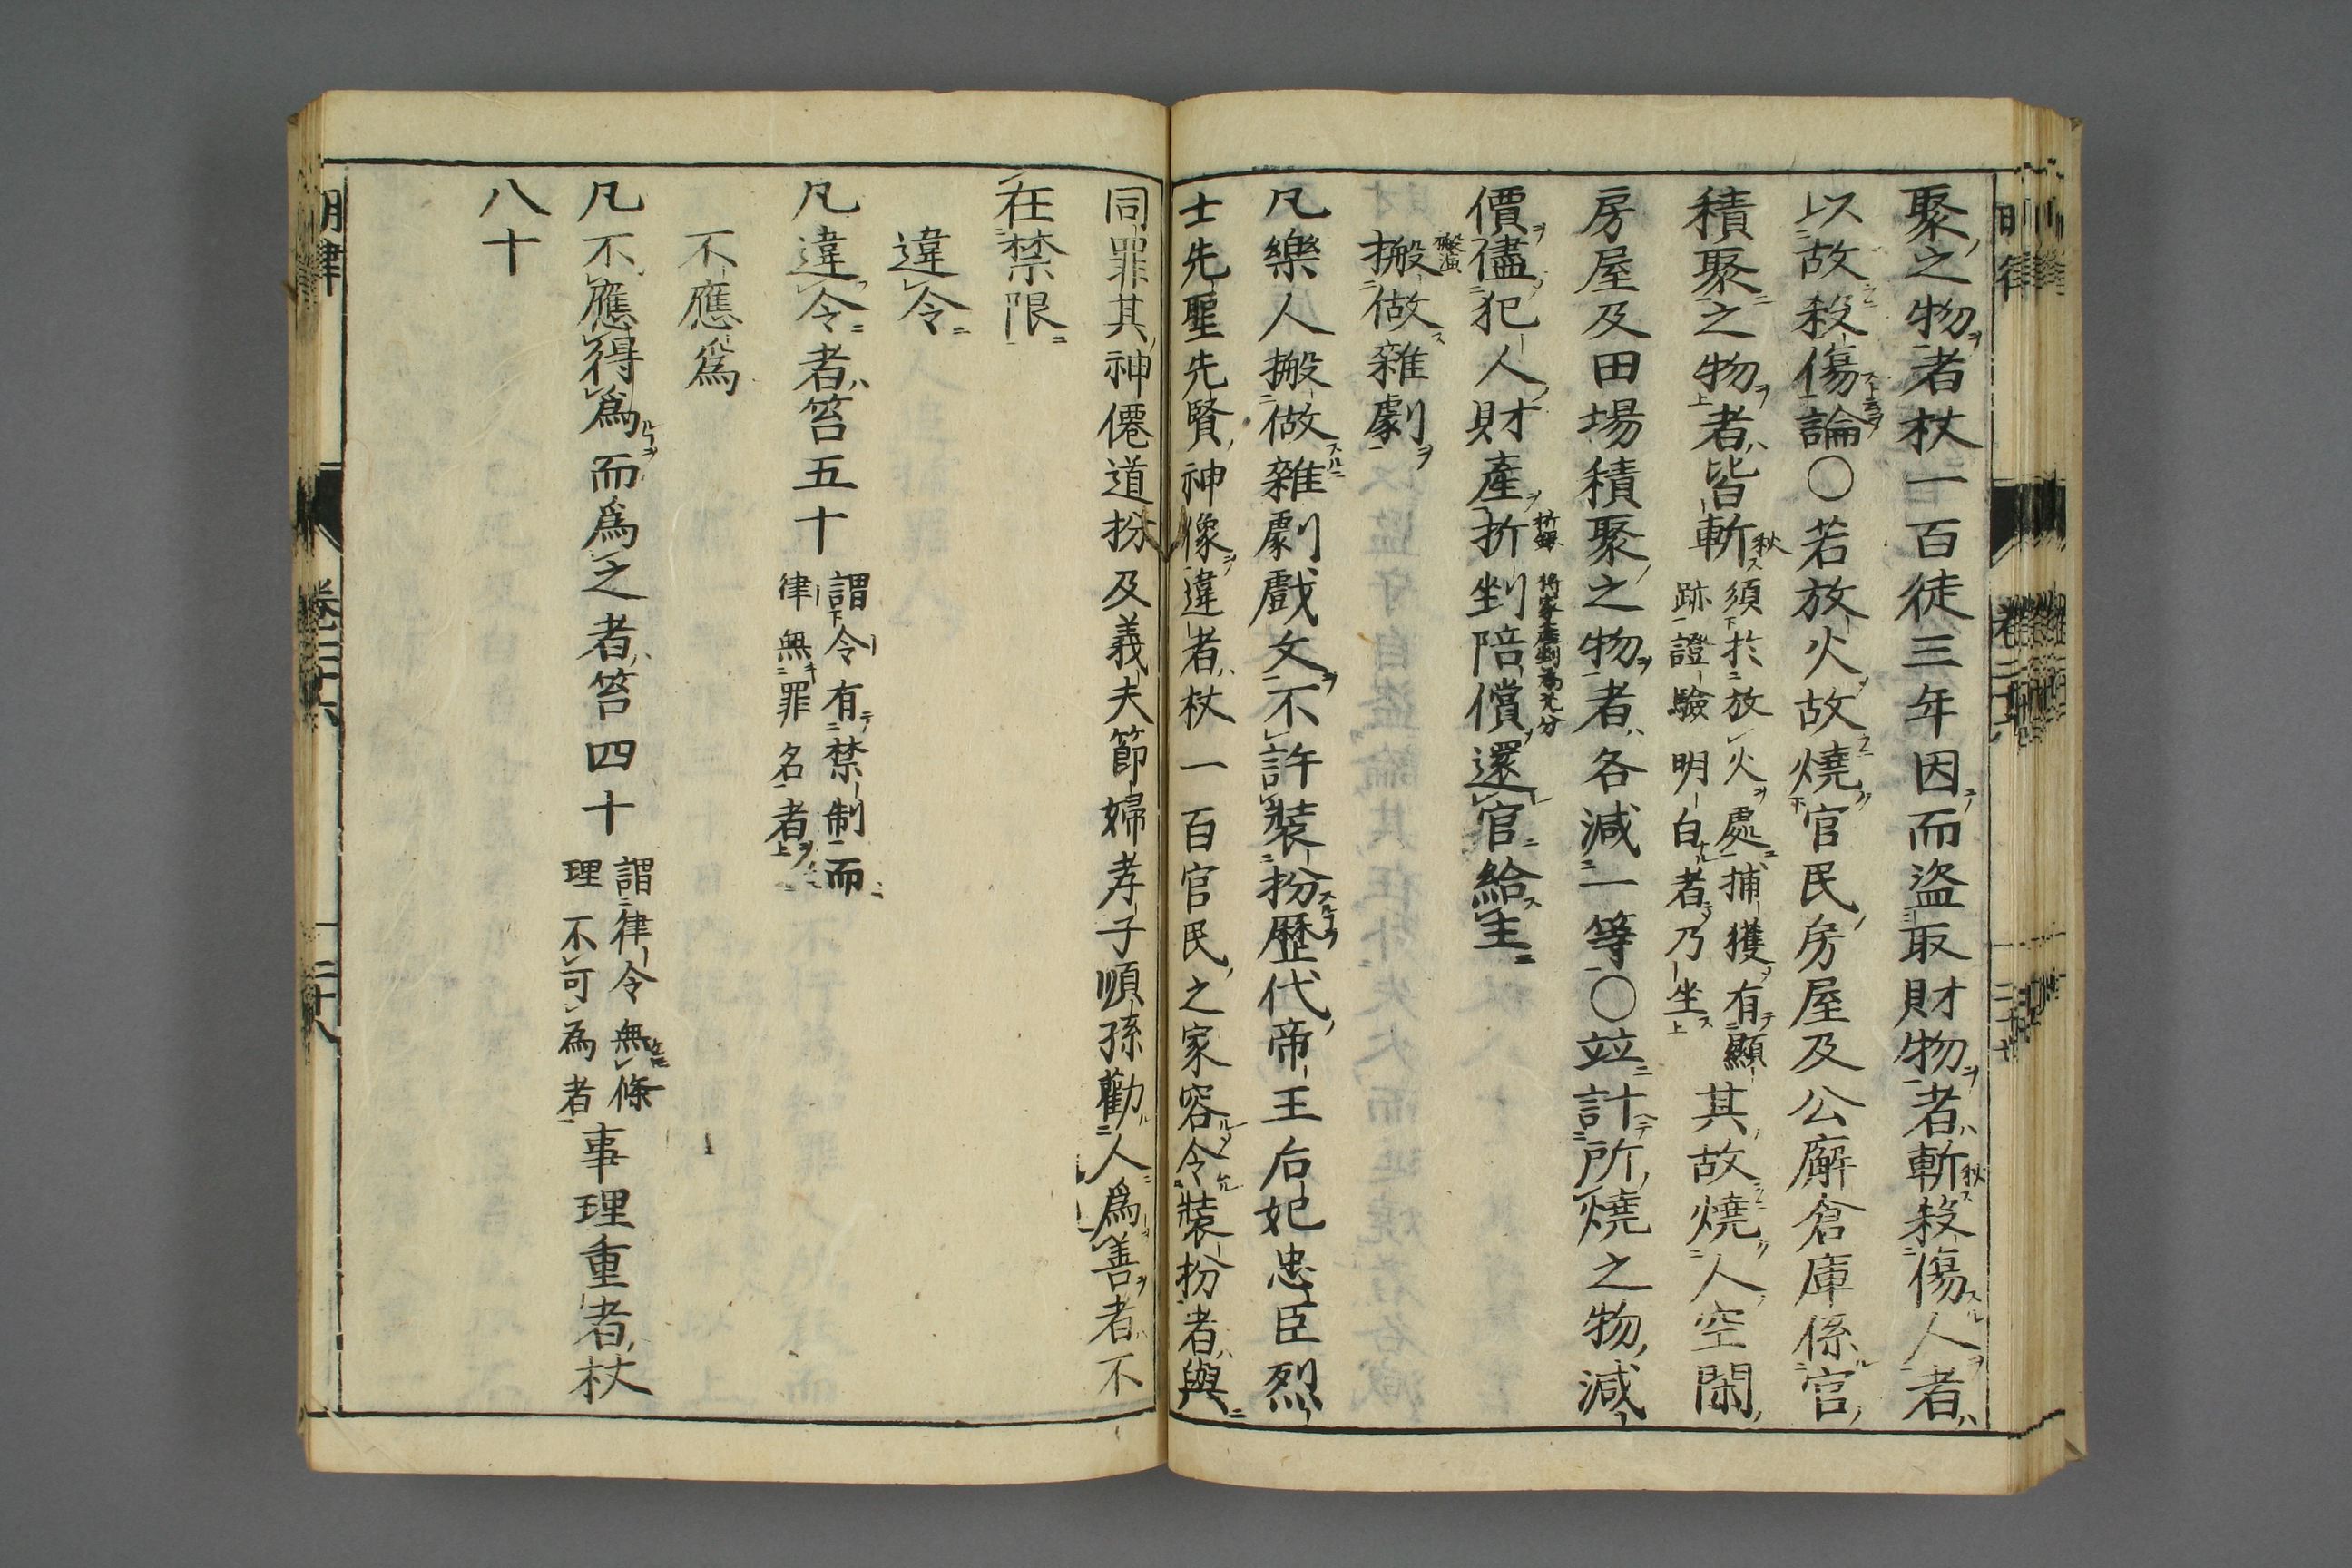 聚之物者杖一百徒三年因而盜取財物者斬殺傷人者
以故殺傷論○若放火故燒官民房屋及公廨倉庫係官
積聚之物者皆斬須於放火處捕獲有顯
跡證驗明白者乃坐其故燒人空閑
房屋及田場積聚之物者各減一等○竝計所燒之物減
價儘犯人財產折剉陪償還官給主
搬做雜劇
凡樂人搬做雜劇戲文不許裝扮歷代帝王后妃忠臣烈
士先聖先賢神像違者杖一百官民之家容令裝扮者與
同罪其神僊道扮及義夫節婦孝子順孫勸人爲善者不
在禁限
違令
凡違令者笞五十謂令有禁制而
律無罪名者
不應爲
凡不應得爲而爲之者笞四十謂律令無條
理不可為者事理重者杖
八十
明律 卷二十六 二十八